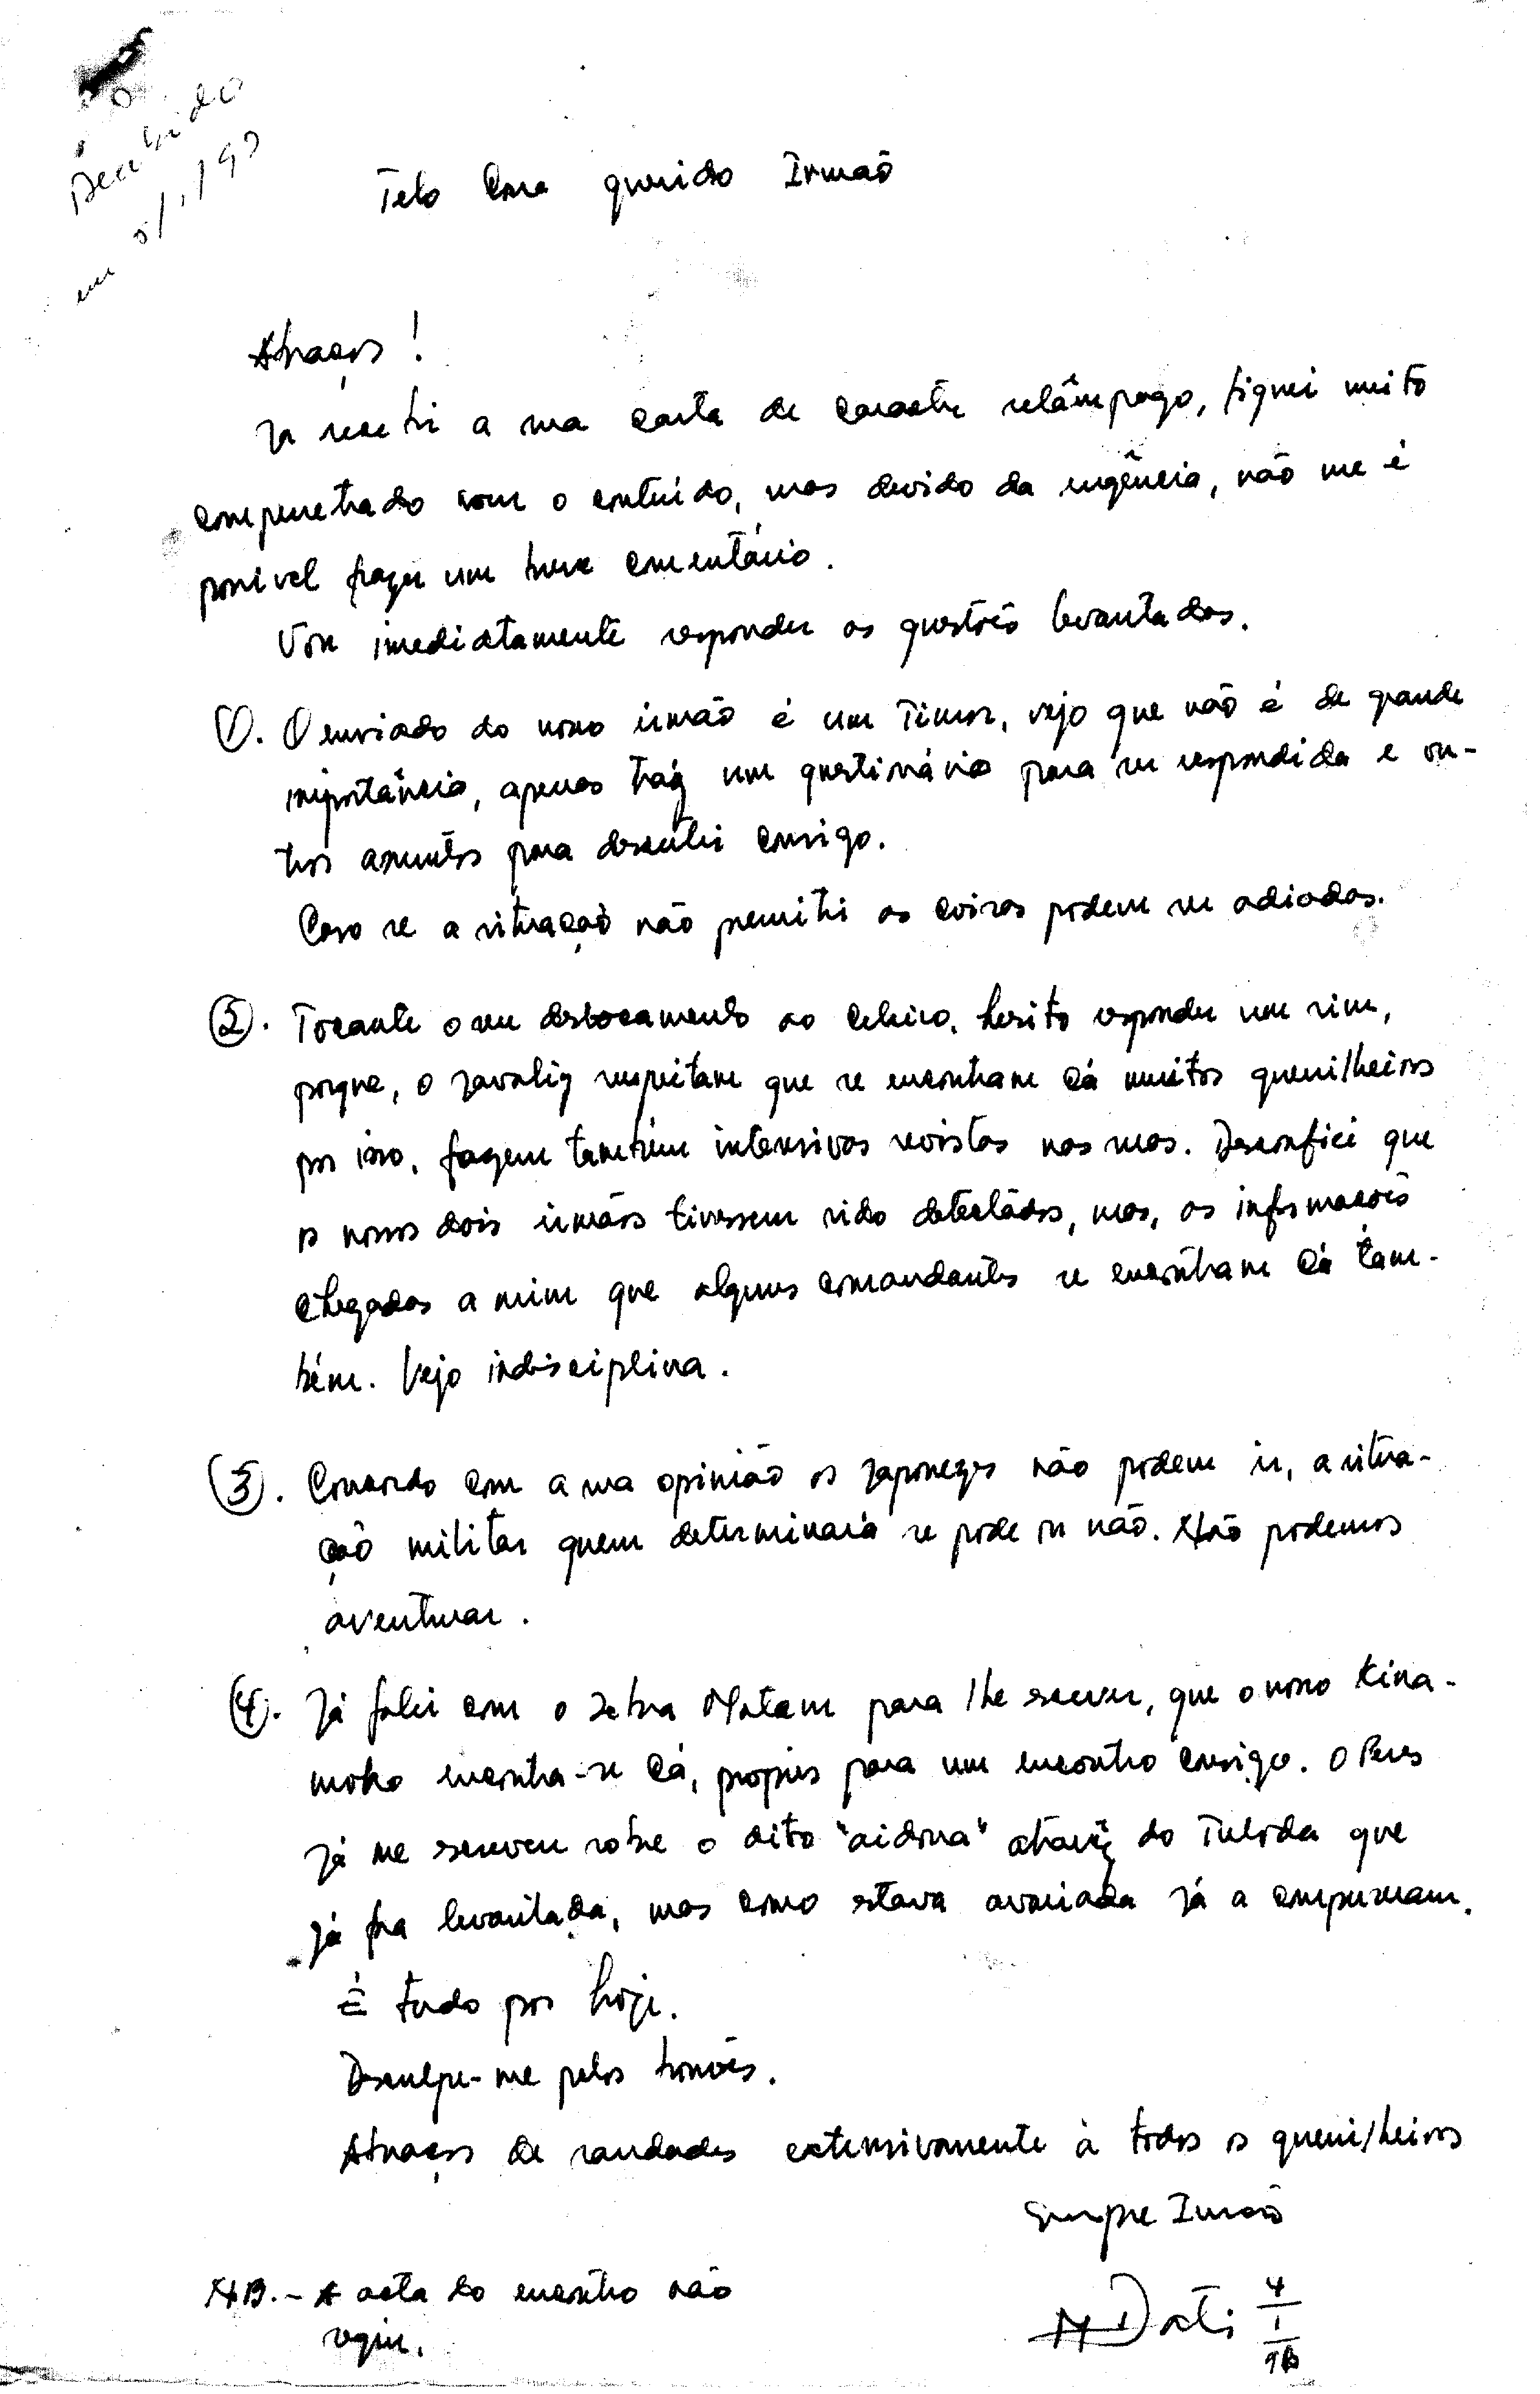 Recebido
em 5/1/98
Telo Cona querido Irmão
Abraços!
Já recebi a sua carta de caracter relâmpago, fiquei muito
compenetrado com o conteúdo, mas devido da urgência, não me é
possivel fazer um breve comentário.
Vou imediatamente responder as questões levantadas.
①. O enviado do nosso irmão é um Timor, vejo que não é de grande
importância, apenas traz um questionário para ser respondida e ou-
tros assuntos para descutir consigo.
Caso se a situação não permitir as coisas podem ser adiadas.
②. Tocante o seu deslocamento ao celeiro, hesito responder um sim,
porque, o javaliz suspeitam que se encontram cá muitos guerrilheiros
por isso, fazem também intensivas revistas nas ruas. Desconfiei que
os nossos dois irmãos tivessem sido detectádos, mas, as informações
chegadas a mim que alguns comandantes se encontram cá tam-
bém. Vejo indisciplina.
③. Concordo com a sua opinião os japonezes não podem ir, a situa-
ção militar quem determinará se pode ou não. Não podemos
aventurar.
④. Já falei com o Sabra Matam para lhe escrever, que o nosso Kina-
moko encontra-se cá, propris para um encontro consigo. O Peres
já me escreveu sobre o dito "aidona" atravéz do Tuloda que
já fra levantada, mas como estava avariada já a compuseram.
É tudo por hoje.
Desculpe-me pelos borrões.
Abraços de saudades extensivamente à todos os guerrilheiros
Sempre Irmão
NB. - A acta do encontro não
segue.
4
1
98